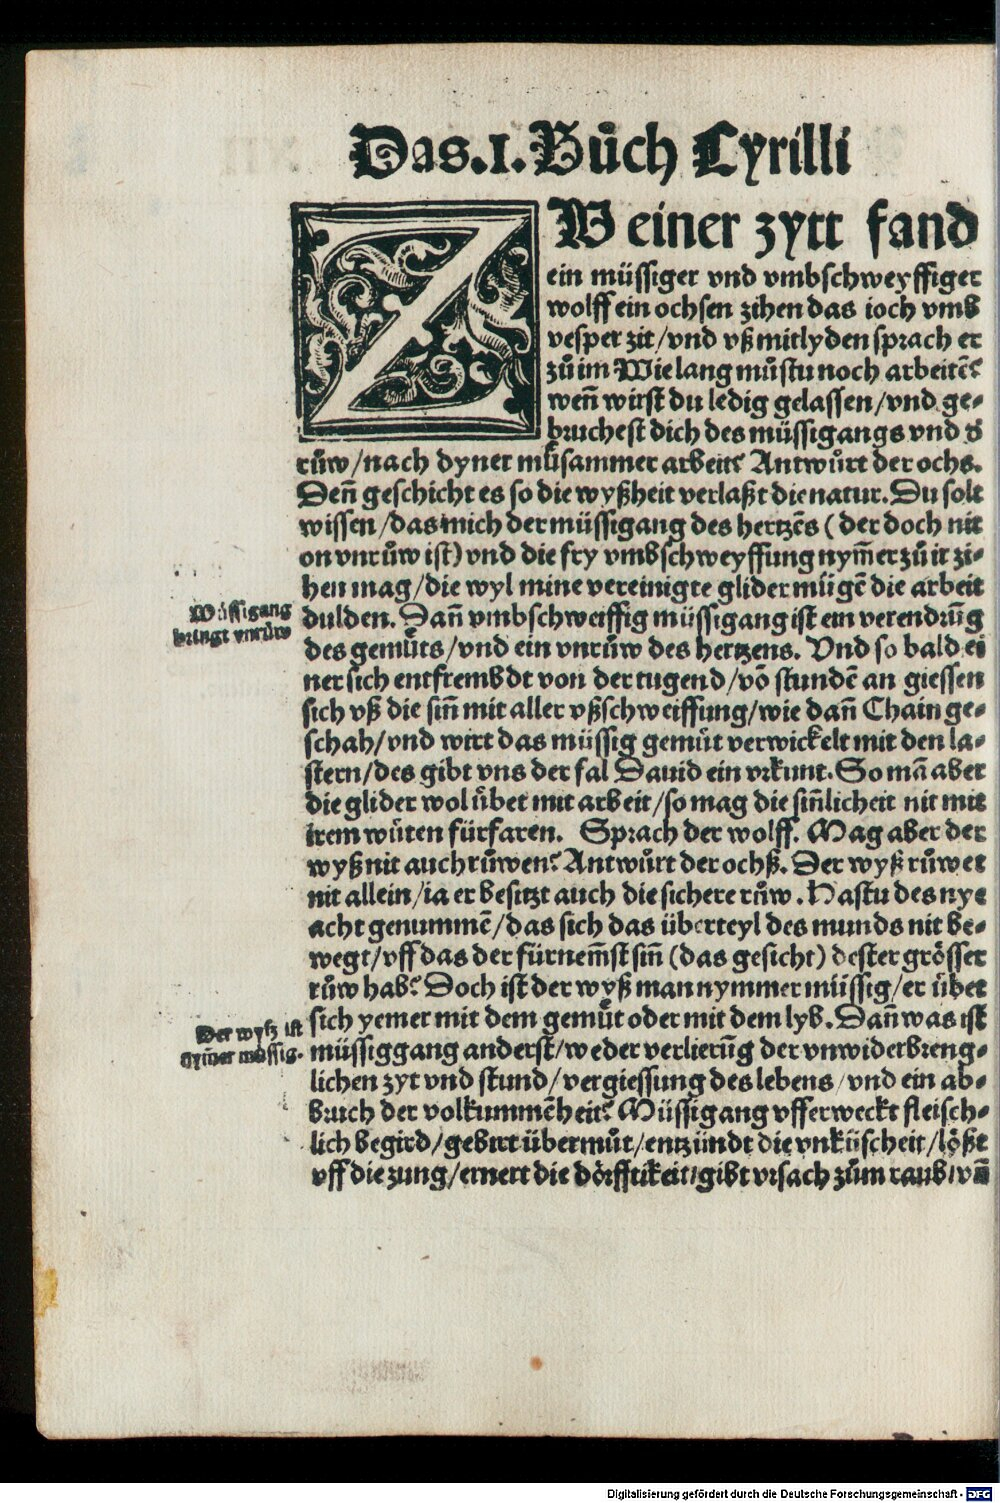 Das.I.Bůch Cyrilli
ZV einer zytt fand
ein müssiger vnd vmbschweyffiger
wolff ein ochsen zihen das ioch vmb
vesper zit/vnd vß mitlyden sprach er
zů im Wie lang můstu noch arbeitẽ?
weñ wirst du ledig gelassen/vnd ge-
bruchest dich des müssigangs vnd d̕
růw/nach dyner můsammer arbeit? Antwůrt der ochs.
Deñ geschicht es so die wyßheit verlaßt die natur. Du solt
wissen/das mich der müssigang des hertzẽs (der doch nit
on vnrůw ist) vnd die fry vmbschweyffung nym̃er zů ir zi-
hen mag/die wyl mine vereinigte glider mügẽ die arbeit
dulden. Dañ vmbschweiffig müssigang ist ein verendrũg
des gemůts/vnd ein vnrůw des hertzens. Vnd so bald ei
ner sich entfrembdt von der tugend/võ stundẽ an giessen
sich vß die siñ mit aller vßschweiffung/wie dañ Chain ge-
schah/vnd wirt das müssig gemůt verwickelt mit den la-
stern/des gibt vns der fal Dauid ein vrkunt. So mã aber
die glider wol übet mit arbeit/so mag die siñlicheit nit mit
irem wůten fürfaren. Sprach der wolff. Mag aber der
wyß nit auch růwen? Antwůrt der ochß. Der wyß růwet
nit allein/ia er besitzt auch die sichere růw. Hastu des nye
acht genummẽ/das sich das überteyl des munds nit be-
wegt/vff das der fürnem̃st siñ (das gesicht) dester grösser
růw hab? Doch ist der wyß man nymmer müssig/er übet
sich yemer mit dem gemůt oder mit dem lyb. Dañ was ist
müssiggang anderst/weder verlierũg der vnwiderbreng-
lichen zyt vnd stund/vergiessung des lebens/vnd ein ab-
bruch der volkummẽheit? Müssigang vfferweckt fleisch-
lich begird/gebirt übermůt/entzündt die vnküscheit/lößt
vff die zung/ernert die dörfftikeit/gibt vrsach zům raub/vñ
Müssigang
bringt vnrůw
Der wysz ist
nym̃er müssig.
Digitalisierung gefördert durch die Deutsche Forschungsgemeinschaft - DFG